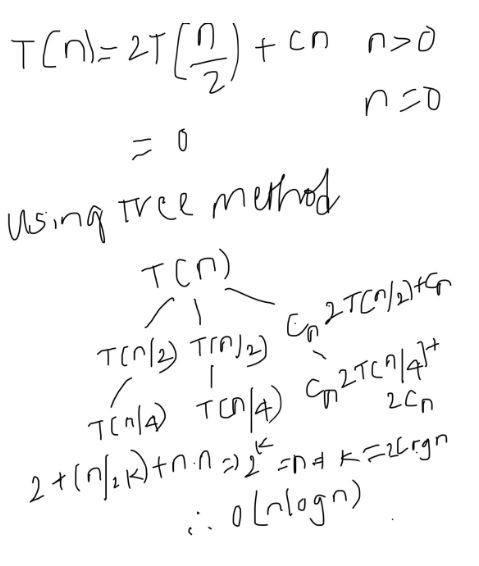 T(n)= 2T(n/2) + Cn n>0
n=0
= 0
Using Tree method
T(n)
T(n/2) T(n/2) Cn 2T(n/2)+Cn
T(n/4) T(n/4) Cn 2T(n/4)+
2Cn
2+(n/2k)+n.n=) 2^k =n & k=
∴ O(nlogn)